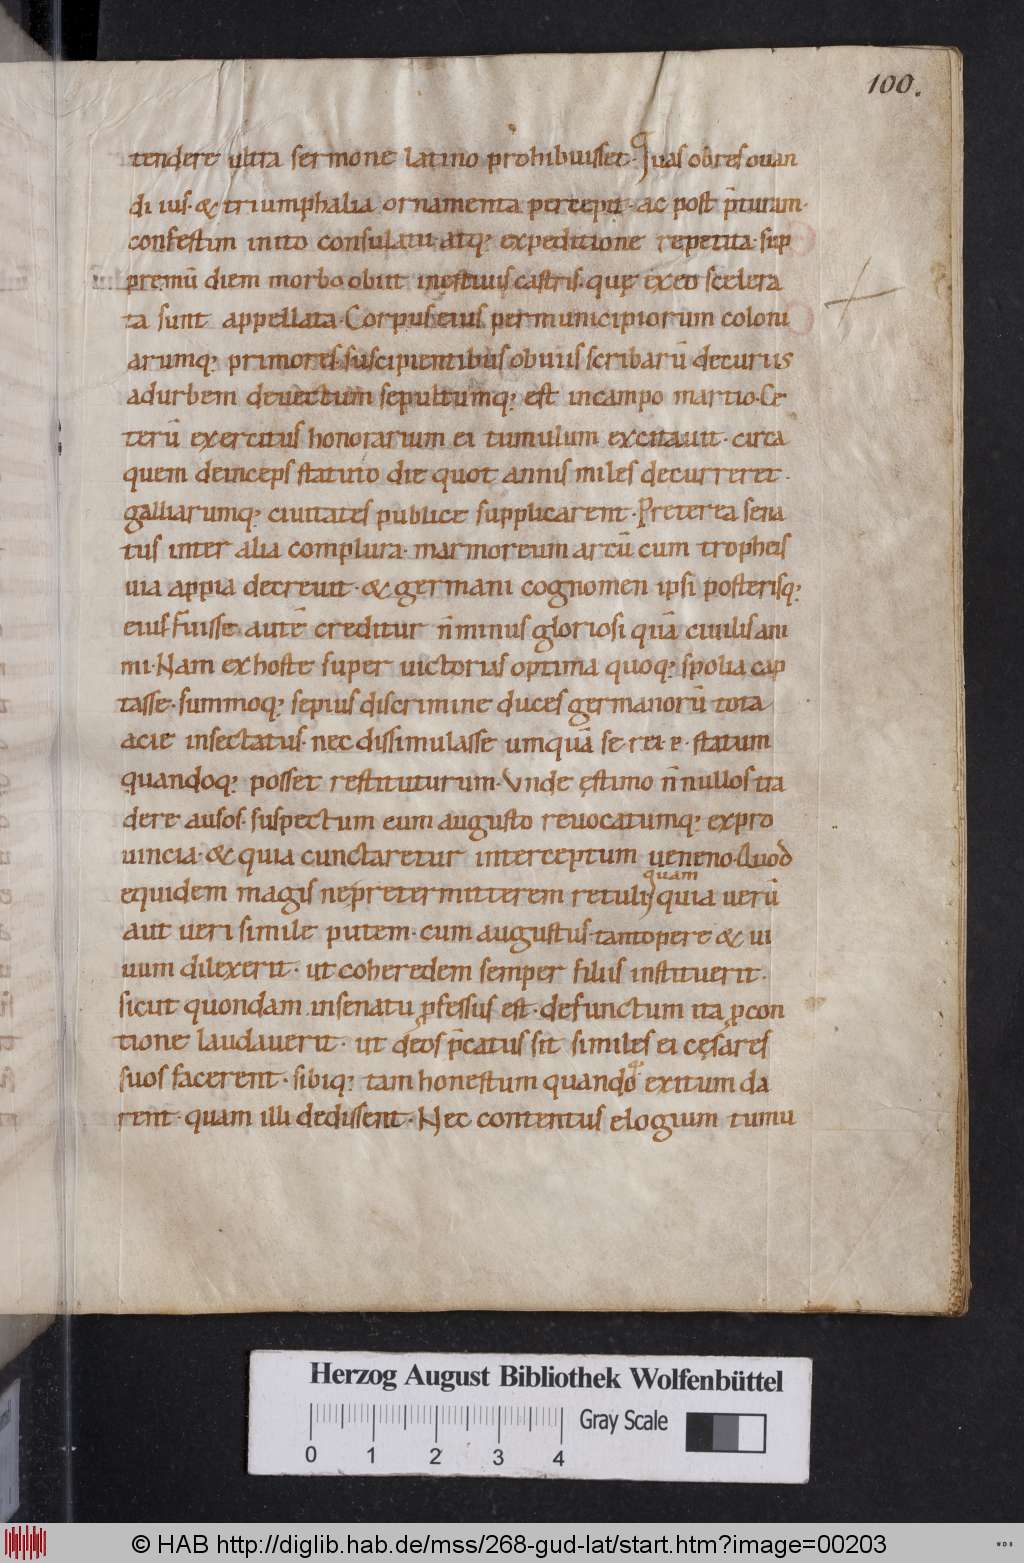 100.
tendere ultra sermone latino prohibuisset. Quas ob res ouan
di ius. & triumphalia ornamenta percepit. ac post p̄turam.
confestim inito consulatu. atq; expeditione repetita. sup
premū diem morbo obiit inestiuis castris. quę ex eo scelera
ta sunt appellata. Corpus eius per municipiorum coloni
arumq; primores. suscipientibus obuiis scribarū decuriis
ad urbem deuectum sepultumq; est in campo martio. Ce
terū exercitus honorarium ei tumulum excitauit. circa
quem deinceps statuto die quot annis miles decurreret.
galliarumq; ciuitates publice supplicarent. Preterea sena
tus inter alia complura. marmoreum arcū cum tropheis
uia appia decreuit. & germani cognomen ipsi posterisq;
eius. Fuisse autē creditur n̄ minus gloriosi quā ciuilis ani
mi. Nam ex hoste super uictorias optima quoq; spolia cap
tasse. summoq; sepius discrimine duces germanorū tota
acie insectatus. nec dissimulasse umquā se. rei. p. statum
quandoq; posset restituturum. Vnde ęstimo n̄ nullos tra
dere ausos. suspectum eum augusto reuocatumq; ex pro
uincia. & quia cunctaretur interceptum ueneno. Quod
quam
equidem magis ne pretermitterem retuli, quia uerū
aut ueri simile putem. cum augustus. tantopere & ui
uum dilexerit. ut coheredem semper filiis instituerit.
sicut quondam in senatu ꝓfessus est. defunctum ita ꝓ con
tione laudauerit. ut deos p̄catus sit similes ei cęsares
suos facerent. sibiq; tam honestum quandoq; exitum da
rent. quam illi dedissent. Nec contentus elogium tumu
Herzog August Bibliothek Wolfenbüttel
Gray Scale
0 1 2 3 4
© HAB http://diglib.hab.de/mss/268-gud-lat/start.htm?image=00203